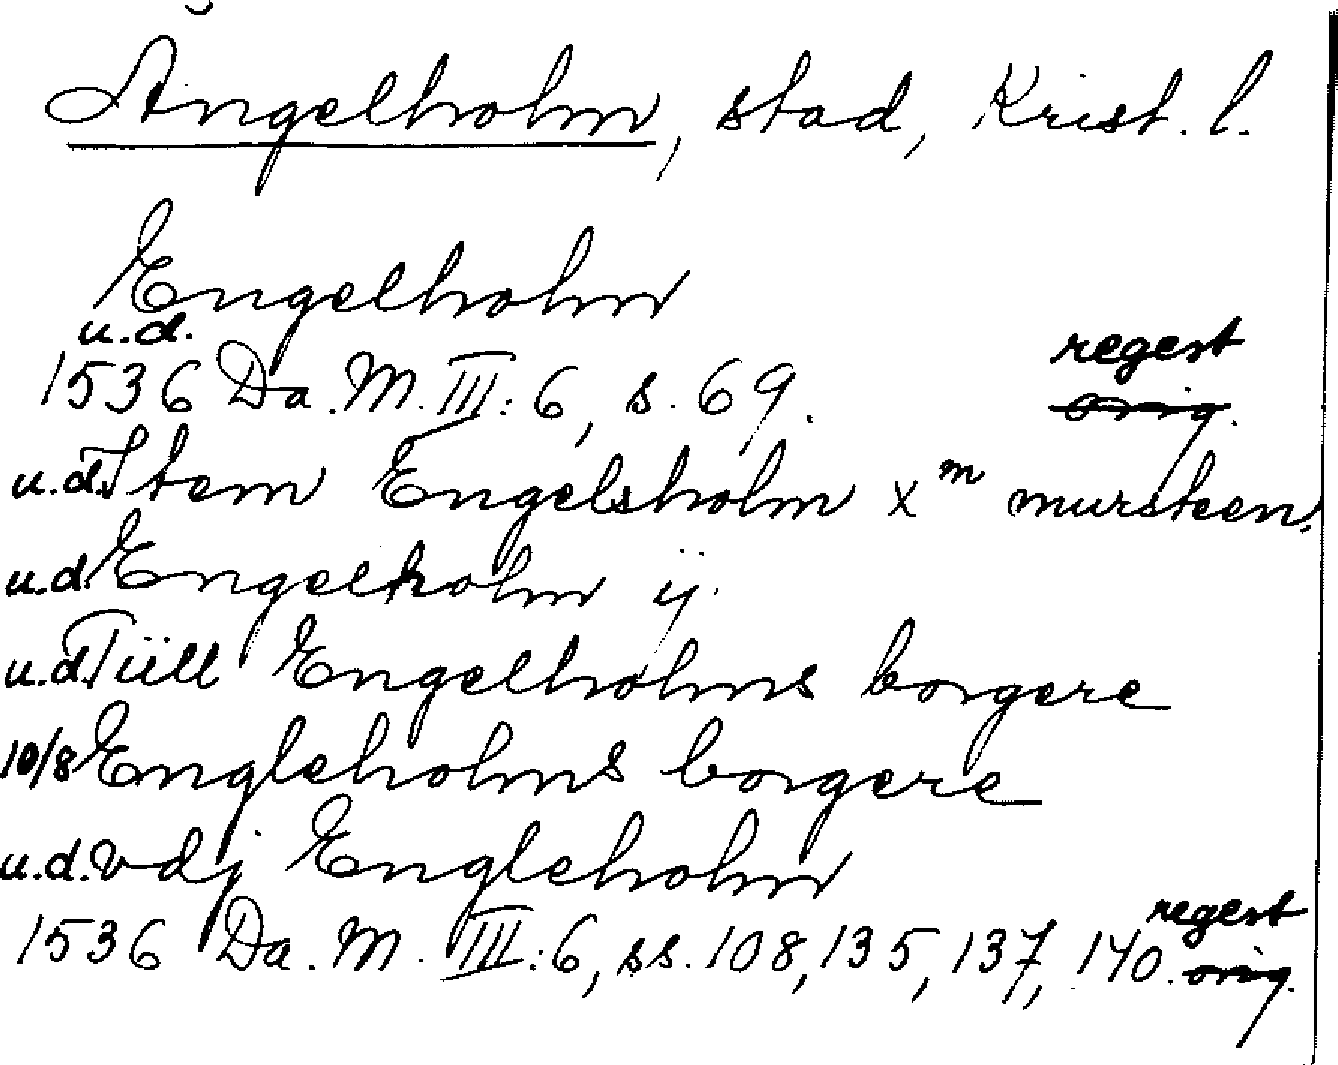 Ängelholm, stad, Krist. l.
Engelholm
u.d. regest
1536 Da. M. III: 6, s. 69. orig.
u.d. Item Engelsholm x m mursteen.
u.d. Engelholm ij.
u.d. Tiill Engelholms borgere
10/8 Engleholms borgere
u.d. vdj Engleholm
regest
1536 Da. M. III: 6, ss. 108, 135, 137, 140. orig.